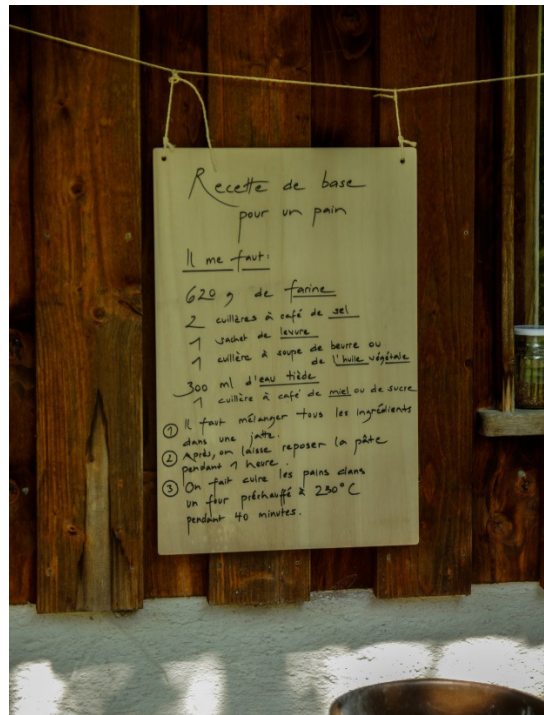 Recette de base
pour un pain
Il me faut:
620 g de farine
2 cuillères à café de sel
1 sachet de levure
1 cuillère à soupe de beurre ou
de l'huile végétale
300 ml d'eau tiède
1 cuillère à café de miel ou de sucre
① Il faut mélanger tous les ingrédients
dans une jatte.
② Après, on laisse reposer la pâte
pendant 1 heure.
③ On fait cuire les pains dans
un four préchauffé à 230°C
pendant 40 minutes.